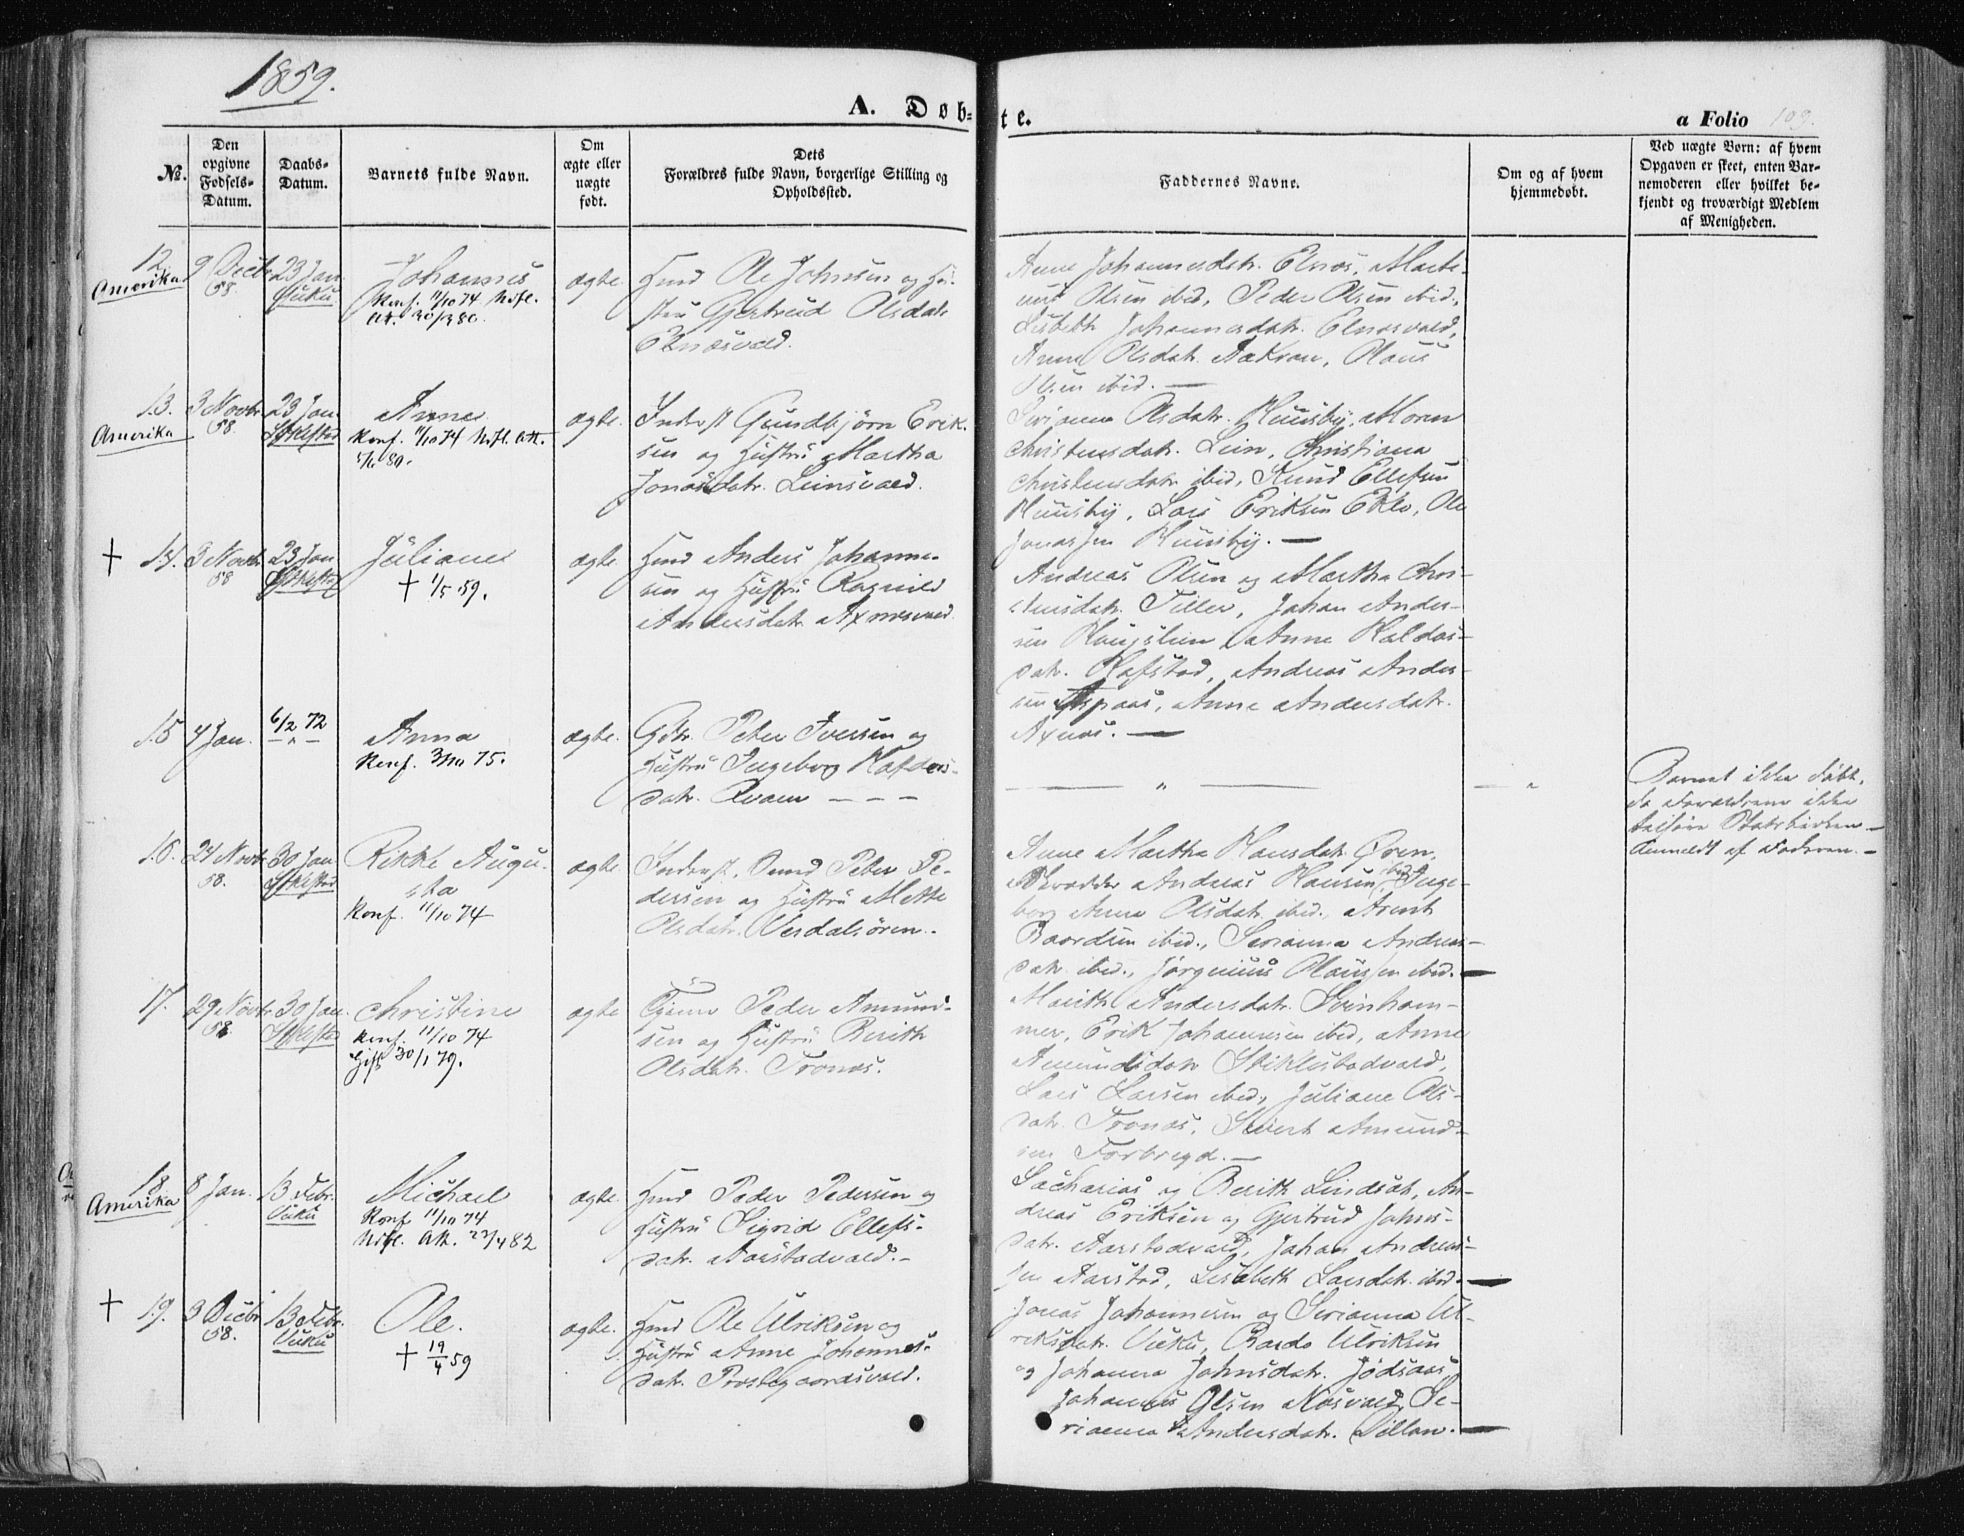 1859.
A. Døb=
te.
a Folio 109.
№.
Den opgivne Fødsels-Datum.
Daabs-Datum.
Barnets fulde Navn.
Om ægte eller uægte født.
Dets Forældres fulde Navn, borgerlige Stilling og Opholdssted.
Faddernes Navne.
Om og af hvem hjemmedøbt.
Ved uægte Børn: af hvem Opgaven er skeet, enten Barnemoderen eller hvilket bekjendt og troværdigt Medlem af Menigheden.
12.
Amerika
9 Decbr
58.
23 Jan.
Vuku
Johannes
Konf. 11/10 74 Udfl.
Att. 30/3 80.
ægte.
Hmd Ole Johnsen og Hu-
stru Gjertrud Olsdatr
Elnæsvald.
Anne Johannesdatr. Elnæs, Marte-
nus Olsen ibid, Peder Olsen ibid.,
Lisbeth Johannesdatr. Elnæsvald,
Anne Olsdatr. Aakran, Olaus
Olsen ibid. —
13.
Amerika
3 Novbr
58.
23 Jan.
Stiklestad
Anna
Konf. 11/10 74 Udfl. Att.
80.
ægte.
Inderst Gundbjørn Erik-
sen og Hustru Martha
Jonasdatr. Leinsvald.
Serianna Olsdatr. Huusby, Maren
Christensdatr. Lein, Christiana
Christensdatr ibid, Knud Ellefsen
Huusby, Lars Eriksen Eklo, Ole
Jonassen Huusby. —
† 14.
3 Novbr
58
23 Jan
Stiklestad
Juliane
† 1/5 59.
ægte.
Hmd Anders Johanne-
sen og Hustru Ragnild
Andersdatr Axnæsvald.
Andreas Olsen og Martha Chri-
stensdatr. Tiller, Johan Ander-
sen Haugslien, Anne Haldos-
datr. Hafstad, Andreas Ander-
sen Aspaas, Anne Andersdatr.
Axnæs. —
15
4 Jan.
6/2 72
— " —
Anna
Konf. 3/10 75.
ægte.
Gdbr. Peter Iversen og
Hustru Ingeborg Haldors-
datr. Kvam — — —
— " —
— "
Barnet ikke døbt,
da Forældrene ikke
tilhøre Statskirken —
Anmeldt af Faderen. —
16.
24 Novbr
58.
30 Jan
Stiklestad
Rikke Augu-
sta
Konf. 11/10 74
ægte
Inderst, Svend Peter Pe-
dersen og Hustru Mette
Olsdatr. Verdalsøren.
Anne Martha Hansdatr. Øren,
Skrædder Andreas Hansen ibid, Inge-
borg Anna Olsdatr. ibid., Arnt
Baardsen ibid., Serianna Andreas-
datr. ibid., Jørgenius Hansen ibid. —
17.
29 Novbr
58
30 Jan.
Stiklestad
Christine
Konf. 11/10 74
Gift 30/1 79.
ægte
Tjener Peder Amund-
sen og Hustru Berith
Olsdatr. Tronæs.
Marith Andersdatr. Svinham-
mer, Erik Johannesen ibid, Anne
Amundsdatr Stiklestadvald,
Lars Larsen ibid, Juliane Ols-
datr. Tronæs, Sivert Amund-
sen Forbregd. —
18.
Amerika
8 Jan.
13 Febr.
Vuku
Michael
Konf 11/10 74
Udfl. Att. 23/4 82
ægte.
Hmd Peder Pedersen og
Hustru Sigrid Ellefs-
datr. Aarstadvald. —
Zacharias og Berith Lindset, An-
dreas Eriksen og Gjertrud Johns-
datr. Aarstadvald, Johan Andreas-
sen Aarstad, Lisabeth Larsdatr. ibid —
† 19.
3 Decbr
58.
13 Febr.
Vuku
Ole.
† 19/4 59
ægte.
Hmd Ole Ulriksen og
Hustru Anne Johannes-
datr. Prestegaardsvald.
Jonas Johannesen og Serianna Ul-
riksdatr. Vuku, Bardo Ulriksen
og Johanna Johnsdatr. Jødsaas,
Johannes Olsen Næsvald, Se-
rianna Andersdatr. Dillan. —